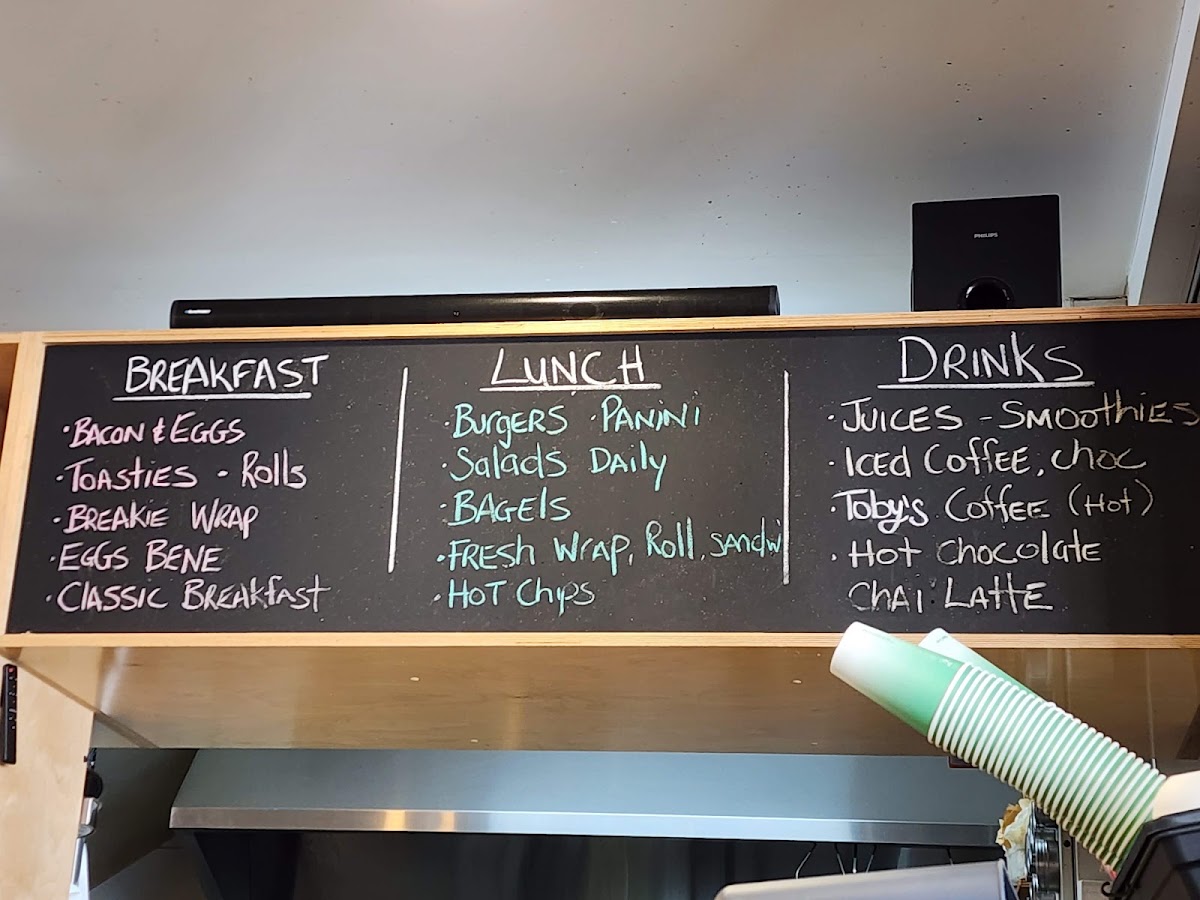 PHILIPS
BREAKFAST
·BACON & EGGS
·TOASTIES - Rolls
·BREAKIE WRAP
·EGGS BENE
·CLASSIC BREAKFAST
LUNCH
·BURGERS ·PANINI
·Salads DAILY
·BAGELS
·FRESH WRAP, Roll, SANDWI
·HOT CHIPS
DRINKS
·JUICES - SMOOTHIES
·ICED COFFEE, CHOC
·Toby's COFFEE (HOT)
·HOT CHOCOLATE
CHAI LATTE